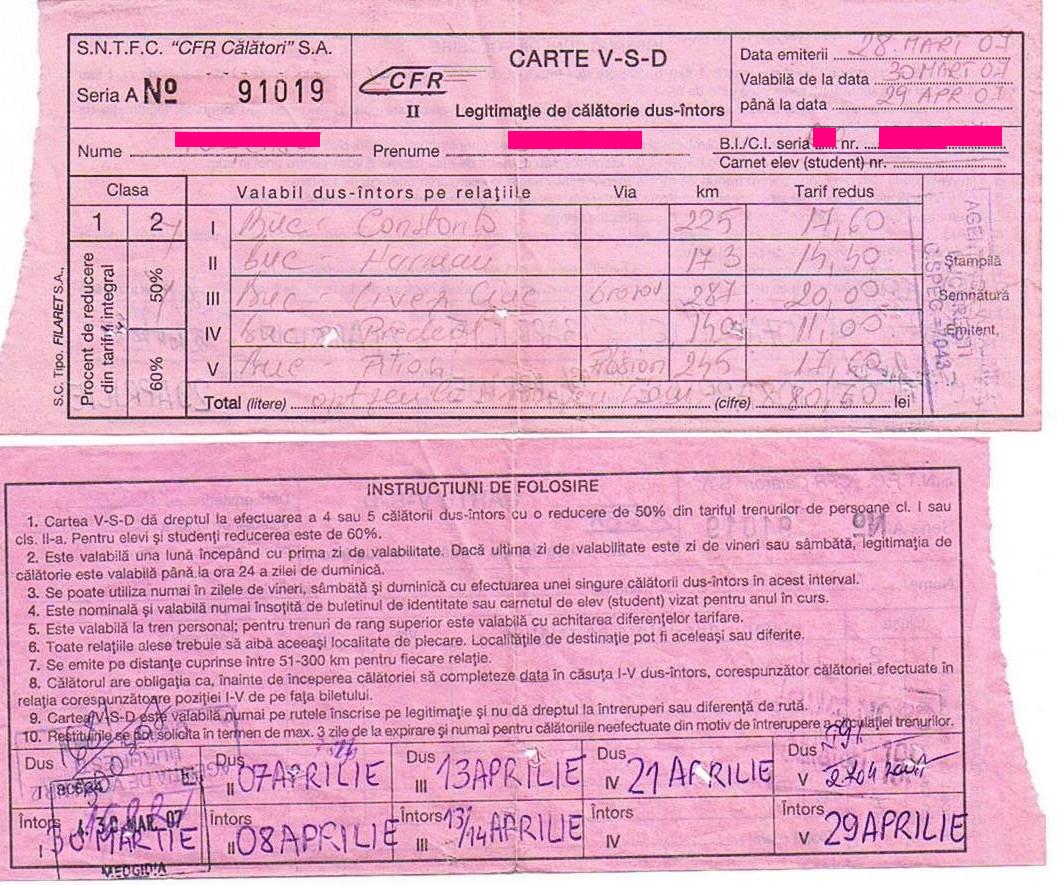 S.N.T.F.C. "CFR Călători" S.A.
Seria A Nº 91019
CFR
II
CARTE V-S-D
Legitimaţie de călătorie dus-întors
Data emiterii 28 MART 07
Valabilă de la data 30 MART 07
până la data 29 APR 07
Nume Prenume B.I./C.I. seria nr.
Carnet elev (student) nr.
Clasa Valabil dus-întors pe relaţiile Via km Tarif redus
1 2 I Buc - Constanta 225 17,60
II Buc - 173 14,40
III Buc - Ciuc Brasov 287 20,00
IV Predeal 140 11,00
V Buc 245 17,60
Procent de reducere din tarifuri integral
50%
60%
Ştampilă
Semnătură
Emitent,
Total (litere) (cifre) 80,60 lei
S.C. Tipo. FILARET S.A.,
INSTRUCŢIUNI DE FOLOSIRE
1. Cartea V-S-D dă dreptul la efectuarea a 4 sau 5 călătorii dus-întors cu o reducere de 50% din tariful trenurilor de persoane cl. I sau
cls. II-a. Pentru elevi şi studenţi reducerea este de 60%.
2. Este valabilă una lună începând cu prima zi de valabilitate. Dacă ultima zi de valabilitate este zi de vineri sau sâmbătă, legitimaţia de
călătorie este valabilă până la ora 24 a zilei de duminică.
3. Se poate utiliza numai în zilele de vineri, sâmbătă şi duminică cu efectuarea unei singure călătorii dus-întors în acest interval.
4. Este nominală şi valabilă numai însoţită de buletinul de identitate sau carnetul de elev (student) vizat pentru anul în curs.
5. Este valabilă la tren personal; pentru trenuri de rang superior este valabilă cu achitarea diferenţelor tarifare.
6. Toate relaţiile alese trebuie să aibă aceeaşi localitate de plecare. Localităţile de destinaţie pot fi aceleaşi sau diferite.
7. Se emite pe distanţe cuprinse între 51-300 km pentru fiecare relaţie.
8. Călătorul are obligaţia ca, înainte de începerea călătoriei să completeze data în căsuţa I-V dus-întors, corespunzător călătoriei efectuate în
relaţia corespunzătoare poziţiei I-V de pe faţa biletului.
9. Cartea V-S-D este valabilă numai pe rutele înscrise pe legitimaţie şi nu dă dreptul la întreruperi sau diferenţă de rută.
10. Restituirile se pot solicita în termen de max. 3 zile de la expirare şi numai pentru călătoriile neefectuate din motiv de întrerupere a circulaţiei trenurilor.
Dus Dus II 07APRILIE Dus III 13APRILIE Dus IV 21 APRILIE Dus V
Întors I 30 MARTIE Întors II 08APRILIE Întors III 13/14APRILIE Întors IV Întors V 29APRILIE
30 MAR. 07
MEDGIDIA